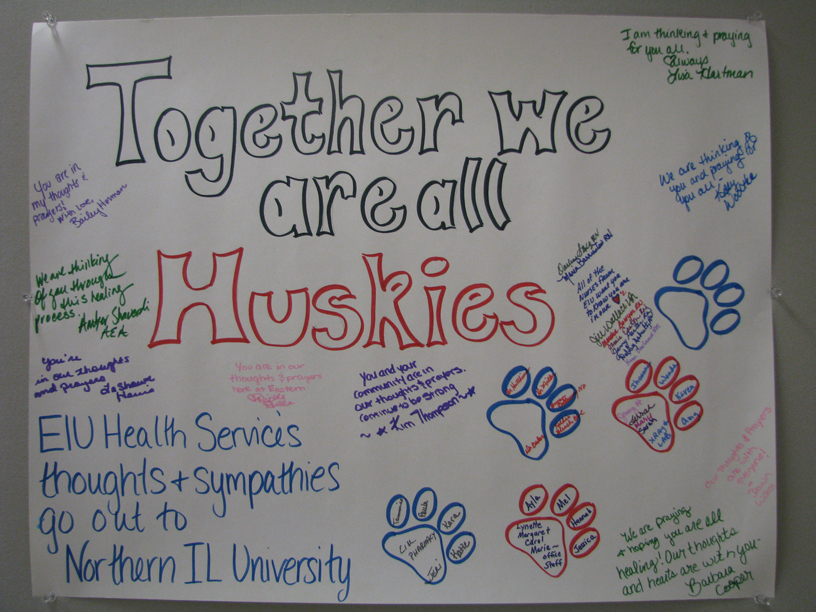 Together we
are all
Huskies
I am thinking + praying
for you all.
Always
Lisa Hartman
We are thinking of
you and praying for
you all -
You are in
my thoughts &
prayers!
With love,
Bailey
We are thinking
of you through
this healing
process.
Amber
You're
in our thoughts
and prayers
You are in our
thoughts & prayers
here at Eastern
You and your
community are in
our thoughts & prayers.
Continue to be strong
~ * Kim Thompson ~ *
All of the
Nurses from
EIU want you
to know you are
in our
EIU Health Services
thoughts + sympathies
go out to
Northern IL University
Rhonda
Wanda
Karen
Amy
Sarah
XRAY &
LAB
PHARMACY
Kara
Ayla
Mel
Hannah
Jessica
Lynette
Margaret
Carol
Marie ~
office
Staff
Our thoughts & Prayers
are with
everyone!
We are praying
+ hoping you are all
healing! Our thoughts
and hearts are with you -
Barbara
Cooper